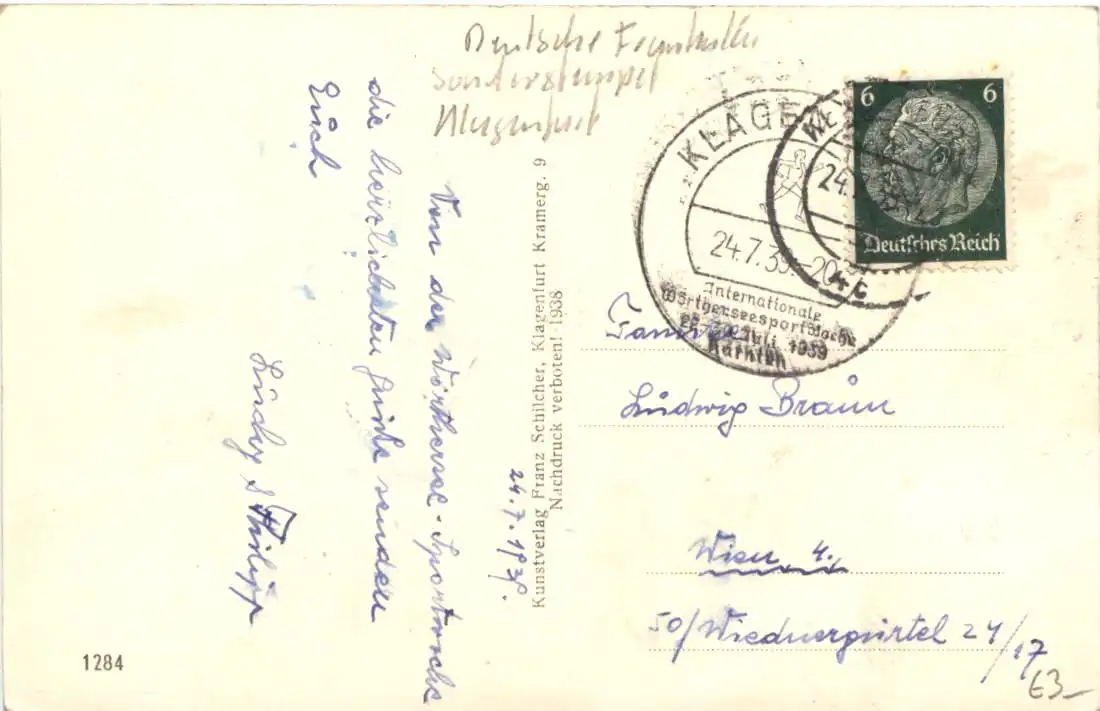 Deutsche
Sonderstempel
Klagenfurt
Von der Wörthersee-Sportwoche
die herzlichsten Grüße senden
Euch
Philipp
24.7.
Kunstverlag Franz Schilcher, Klagenfurt Kramerg. 9
Nachdruck verboten! 1938
1284
KLAGE
24.7.39.-20
Internationale
Wörtherseesportwoche
Juli 1939
Kärnten
24.
6 6
Deutsches Reich
Ludwig Braun
Wien 4.
50/ Wiednergürtel 24/17
€3-